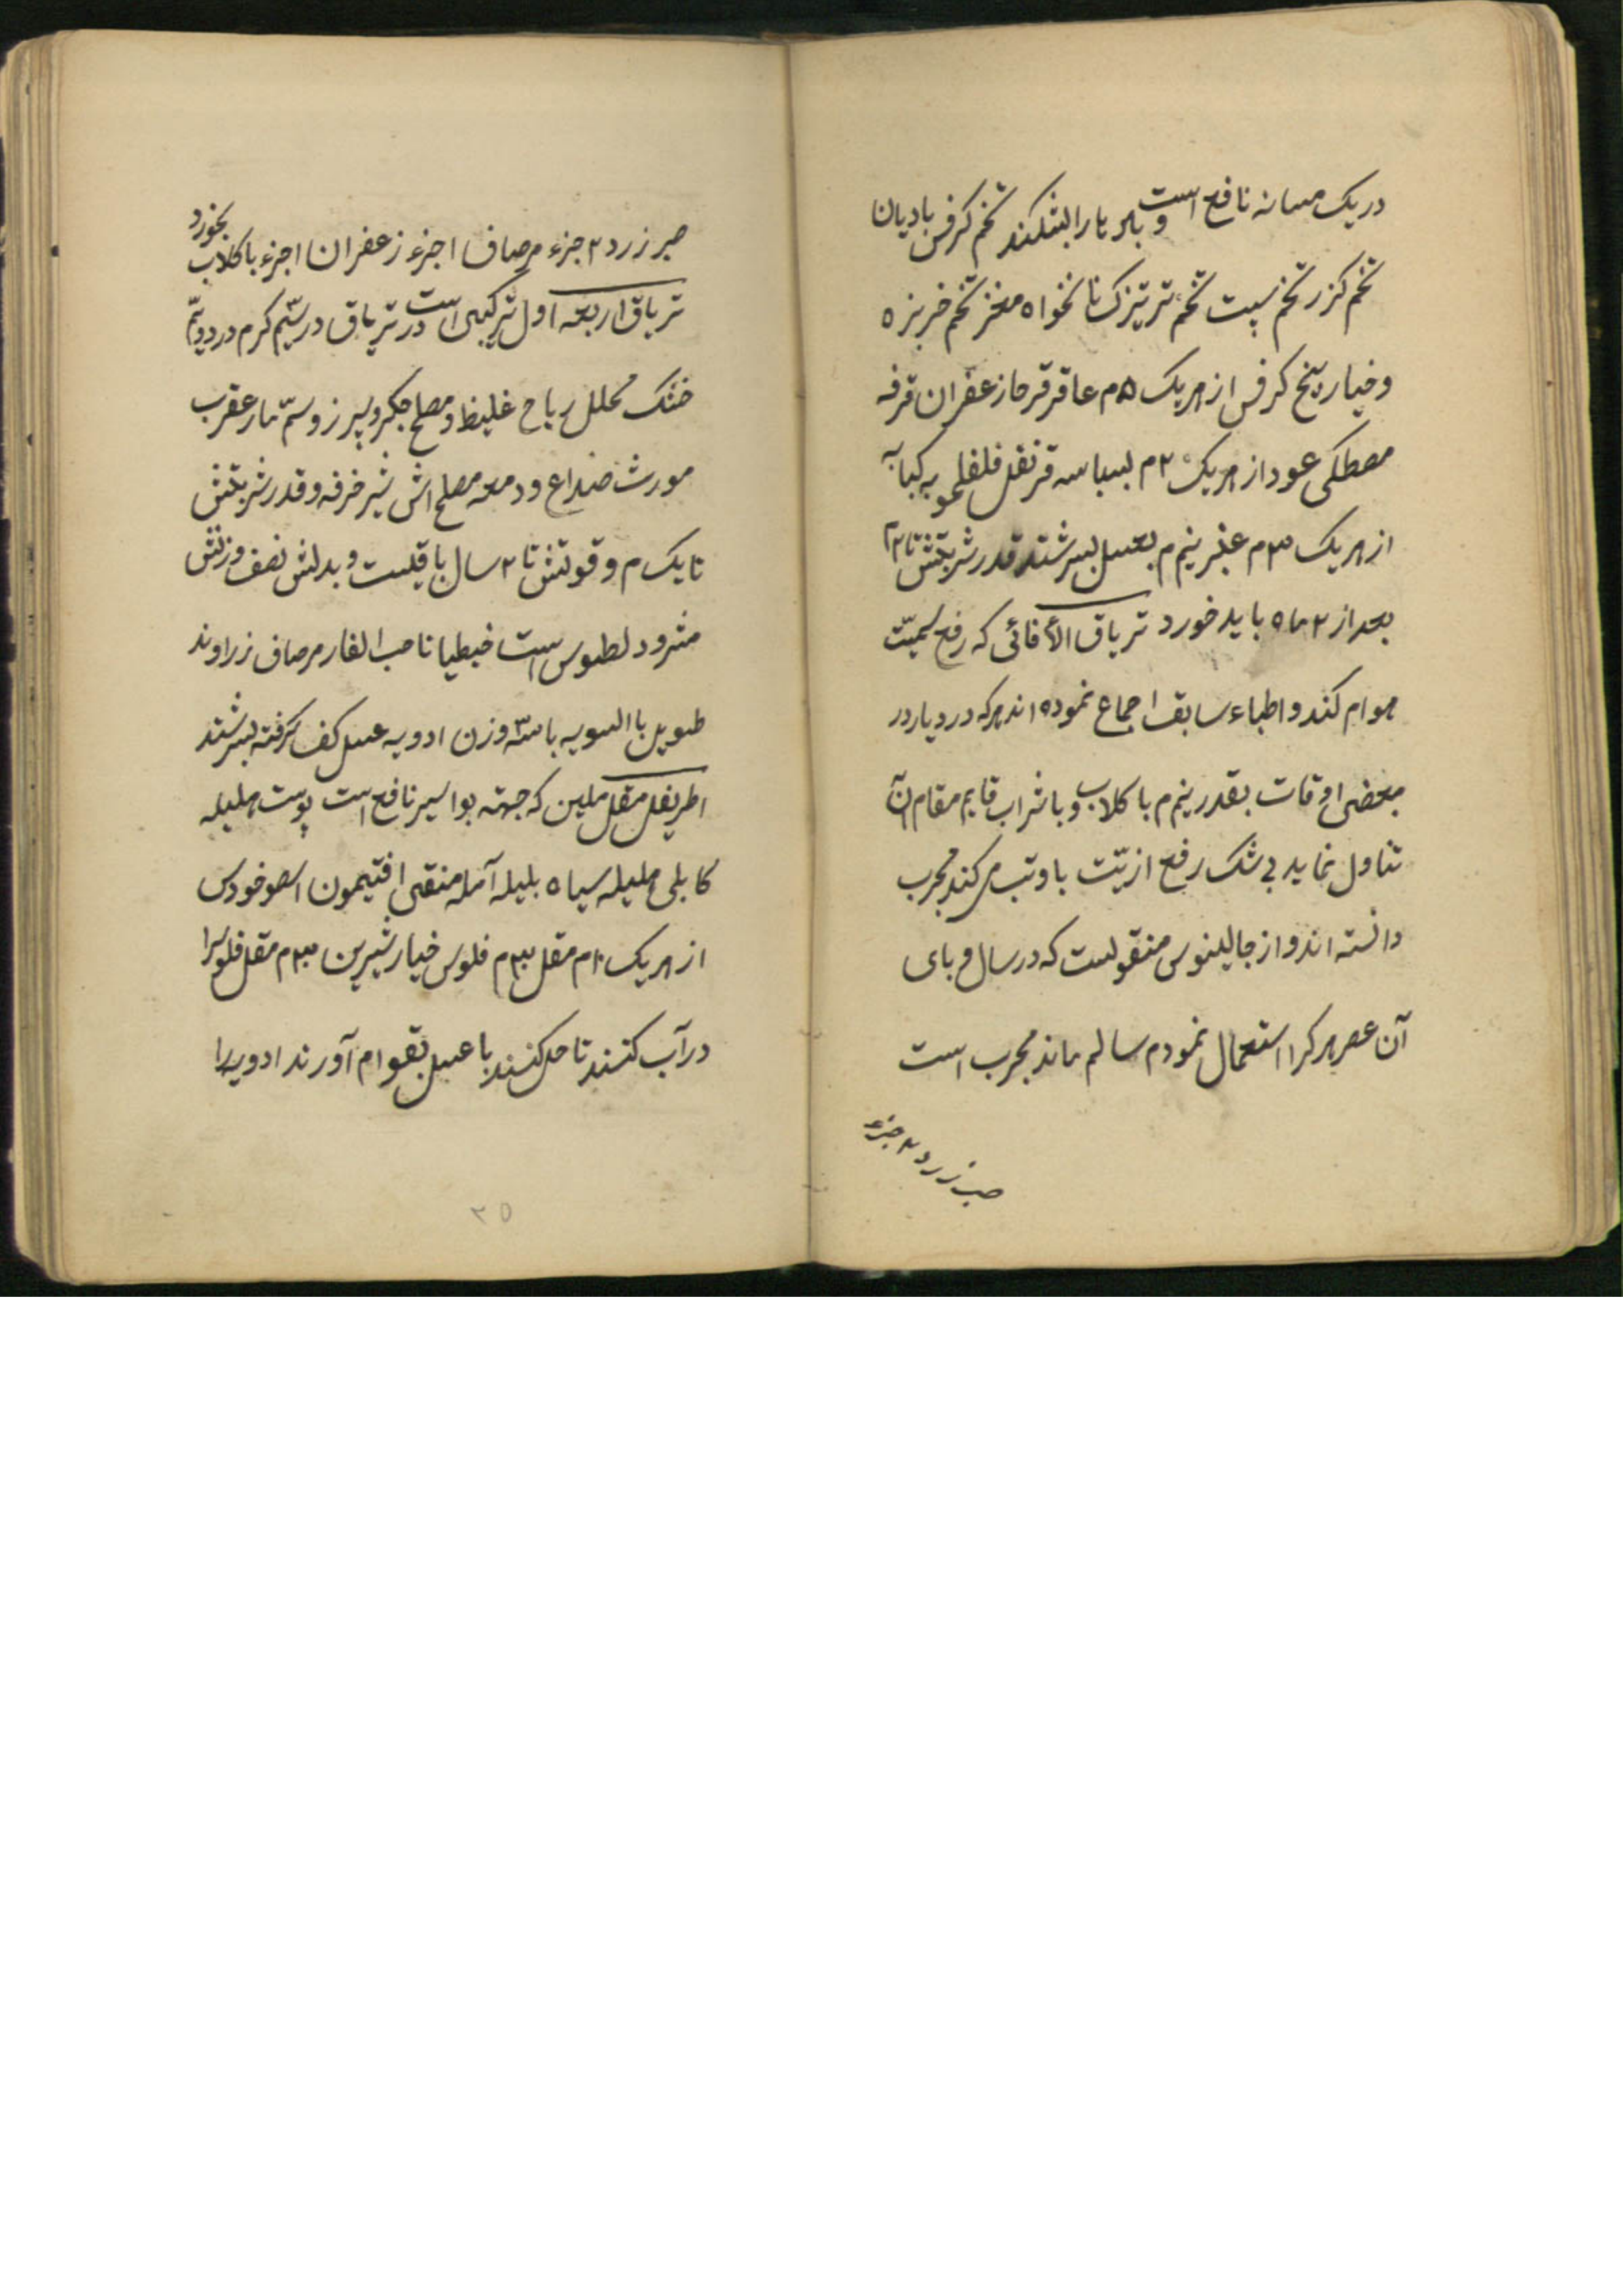 در یک مسانه نافع است و باه را بشکند تخم کرفس بادیان
تخم کزر تخم سپت تخم ترتیزک نانخواه مغز تخم خربزه
و خیار بیخ کرفس از هر یک ۵م عاقرقرحا زعفران قرفه
مصطکی عود از هر یک ۲م بسباسه قرنفل فلفلمویه کبابه
از هر یک ۳م عنبر نیم م بعسل بسرشند قدر شربتش تا ۲م
بعد از ۲ ماه باید خورد تریاق الأفائی که رفع سمیّت
هوام کند و اطباء سابق اجماع نموده اند هر که در دیار در
بعضی اوقات بقدر نیم م با کلاب و با شراب قایم مقام آن
تناول نماید بی شک رفع ازیّت با وتب می کند مجرب
دانسته اند و از جالینوس منقولست که در سال وبای
آن عصر هر کرا استعمال نمودم سالم ماند مجرب است
صبر زرد ۲ جزء
صبر زرد ۲ جزء مرصاف ا جزء زعفران ا جزء با کلاب بخورد
تریاق اربعه اول ترکیبی است در تریاق در سیّم کرم در دویّم
خشک محلل ریاح غلیظ و مصلح جکر و سپرز و سمّ مار عقرب
مورث صداع و دمعه مصلح اش شیر خرفه و قدر شربتش
تا یک م و قوتش تا ۲ سال باقیست و بدلش نصف وزنش
مثرودلطوس است خبطیانا حب الغار مرصاف زراوند
طویل باالسویه با سه وزن ادویه عسل کف کرفته بسرشند
اطریفل مقل ملین که جهته بواسیر نافع است پوست هلیله
کابلی هلیله سیاه بلیله آمله منقی افتیمون اسوخودس
از هر یک ۱۰م مقل ۳۰م فلوس خیار شیرین ۳۰م مقل فلوسرا
در آب کنند تا حل کنند با عسل بقوام آورند ادویه را
۳۵